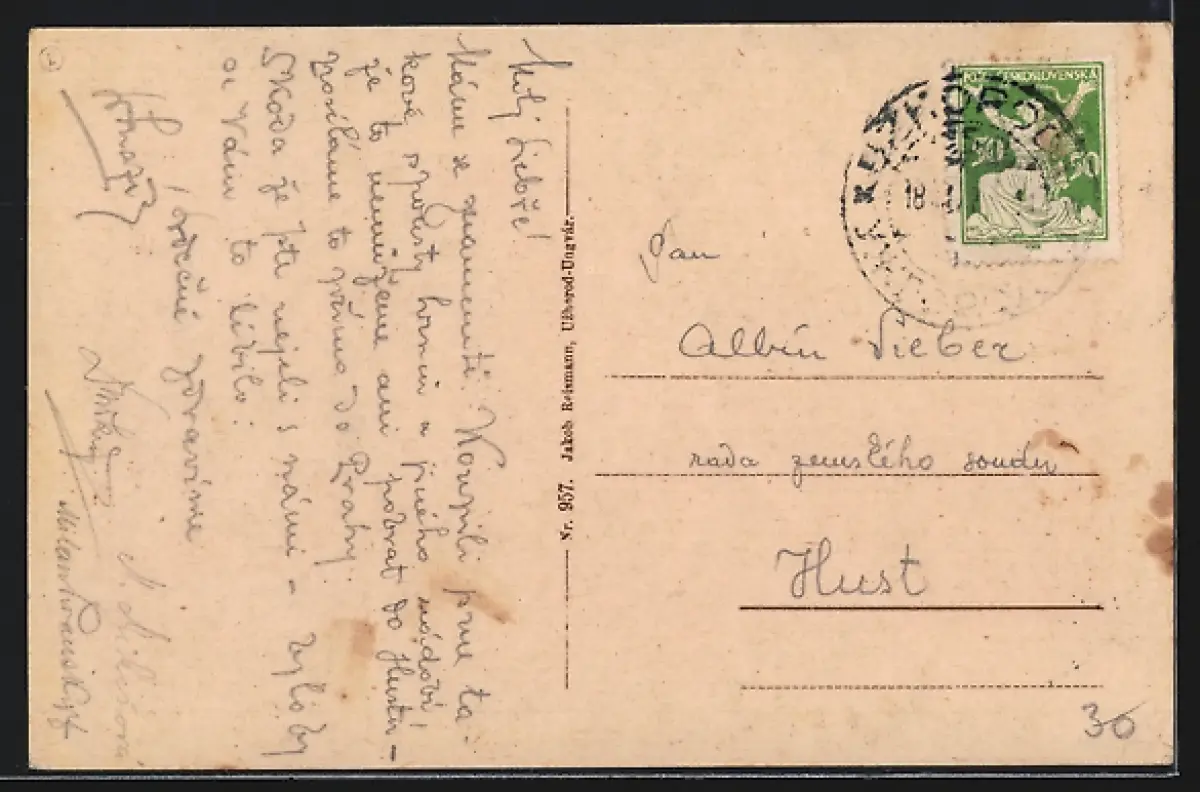 Milý Sieber!
Máme se znamenitě. Koupili jsme ta-
kové spousty hrnců a jiného nádobí!
že to nemůžeme ani pobrat do Hustu -
posíláme to přímo do Prahy.
Škoda že jste nejeli s námi - bylo by
se Vám to líbilo.
Srdečně zdravíme
Nr. 957. Jakob Reismann, Užhorod-Ungvár.
ČESKOSLOVENSKA
50
18
Pan
Albín Sieber
rada zemského soudu
Hust
30